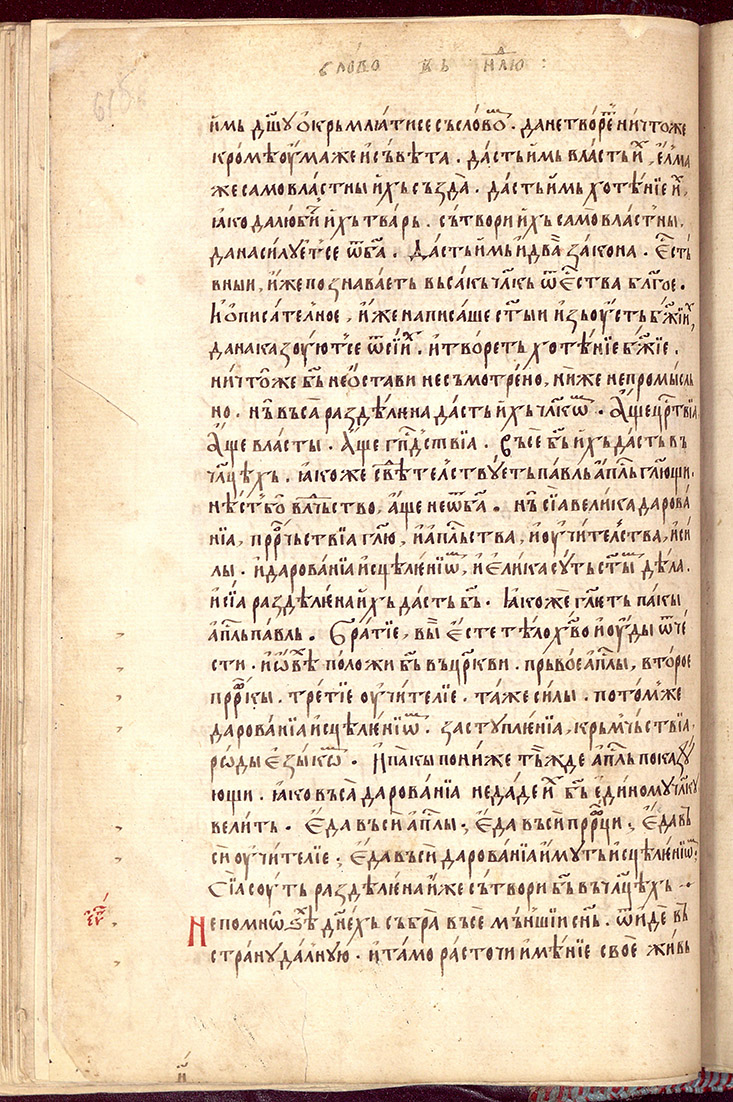 сло́во въ н҃лю :
и̑мь дш҃у ѻ̑крьмлꙗ́ти се съ сло́вѡⷨ . да не тво́реⷮ ничто́же
кромѣ ѹ̑ма же и̑ съвѣта . да́сть и̑мь вла́сть иⷯ , є̑лма
же само вла́стны и̑хь създа̀ . да́сть и̑мь хотѣ́нїе иⷯ ,
ꙗ̑ко да люби́ⷮ и̑хь тва́рь . сътвори и̑хь само вла́стⸯны .
да не силꙋ́етⸯсе ѿ б҃а . Да́сть и̑мь и̑ два̀ зако́на . Є̑сть
вныи , и̑же познава́еть вьса́кь чл҃кь ѿ є̑ства бл҃гое .
И ѻ̑писа́телное , и̑же написа́ше ст҃ыи и̑зь ѹ̑сть бж҃їиⷯ ,
да наказꙋ́ютⸯсе ѿ си́иⷯ . и̑ тво́реть хотѣ́нїе бж҃їе .
ничто́же бь҃ не ѻ̑стави несъмотре́но , ни́же непромы́сль
но . нⸯ въса̀ раздѣле́на да́сть и̑хь чл҃кѡⷨ . А̑ще црⷭ҇твїа ,
А̑ще власты . А̑ще гпⷭ҇дствїа . Въсѐ бь҃ и̑хь да́сть въ
чл҃цѣхь . ꙗ̑коже свѣ́телствꙋеть па́вль а̑пⷭ҇ль гл҃ющи .
нѣ́сть бо̀ влⷣчьство , а̑ще не ѿ б҃а . нⸯ сїа̀ вели́ка дарова́
нїа , прⷪ҇рчьствїа гл҃ю , и̑ а̑пⷭ҇льства , и̑ ѹ̑чи́телства , и̑ си́
лы . и̑ дарова́нїа и̑сцѣле́нїѡⷨ , и̑ є̑лика сꙋ́ть ст҃ыⷨ дѣ́ла .
и̑ сїа̀ раздѣле́на и̑хь да́сть бь҃ . Ꙗ̑коже гл҃еть па́кы
а̑пⷭ҇ль па́вль . Бра́тїе , вы̀ є̑сте тѣ́ло хв҃о и̑ ѹ̑ды ѿ че́
сти . и̑ ѡ̑вѣⷯ положи бь҃ въ цр҃кви . пръ́вое а̑пⷭ҇лы , вто́рое
прⷪ҇ркы . тре́тїе ѹ̑чи́телїе . та́же си́лы . пото́мⸯже
дарова́нїа и̑сцѣле́нїѡⷨ . застꙋпле́нїа , крьмⸯчьствїа ,
рѡ́ды є̑зы́кѡⷨ . И̑ па́кы пони́же тъ́жде а̑пⷭ҇ль показꙋ́
ющи . ꙗ̑ко въса̀ дарова́нїа не да́де иⷯ бь҃ є̑ди́номꙋ чл҃кꙋ
вели́ть . Є̑да въсѝ а̑пⷭ҇лы ; Є̑да въсѝ прⷪ҇рци ; Є̑да въ
сѝ ѹ̑чи́телїе ; Є̑да въсѝ дарова́нїа и̑мꙋть и̑сцѣле́нїѡⷨ ;
Сїа̀ сѹть раздѣле́на и̑же сътвори бь҃ въ чл҃цѣхь .
Не по мнѡ́ѕѣ днеⷯхь събра̀ въсѐ мъ́ншїи сн҃ь . ѿи́де въ
странꙋ да́лнꙋю . и̑ та́мо расто́чи и̑мѣ́нїе своѐ жи́вь